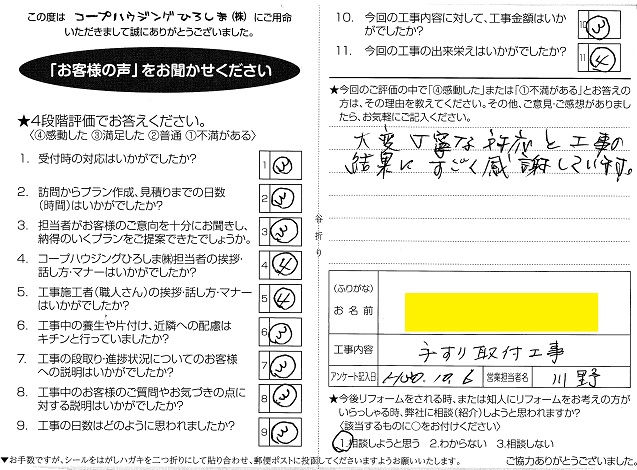 この度は コープハウジングひろしま(株) にご用命
いただきまして誠にありがとうございました。
「お客様の声」をお聞かせください
★4段階評価でお答えください。
〈④感動した ③満足した ②普通 ①不満がある〉
1. 受付時の対応はいかがでしたか?
1 ③
2. 訪問からプラン作成、見積りまでの日数
(時間)はいかがでしたか?
2 ③
3. 担当者がお客様のご意向を十分にお聞きし、
納得のいくプランをご提案できたでしょうか。
3 ③
4. コープハウジングひろしま㈱担当者の挨拶・
話し方・マナーはいかがでしたか?
4 ④
5. 工事施工者(職人さん)の挨拶・話し方・マナー
はいかがでしたか?
5 ④
6. 工事中の養生や片付け、近隣への配慮は
キチンと行っていましたか?
6 ③
7. 工事の段取り・進捗状況についてのお客様
への説明はいかがでしたか?
7 ③
8. 工事中のお客様のご質問やお気づきの点に
対する説明はいかがでしたか?
8 ③
9. 工事の日数はどのように思われましたか?
9 ③
谷折り
10. 今回の工事内容に対して、工事金額はいか
がでしたか?
10 ③
11. 今回の工事の出来栄えはいかがでしたか?
11 ④
★今回のご評価の中で「④感動した」または「①不満がある」とお答えの
方は、その理由を教えてください。その他、ご意見・ご感想がありました
ら、お気軽にご記入ください。
大変丁寧な対応と工事の
結果にすごく感謝しています。
(ふりがな)
お名前
工事内容 手すり取付工事
アンケート記入日 H30.10.6 営業担当者名 川野
★今後リフォームをされる時、または知人にリフォームをお考えの方が
いらっしゃる時、弊社に相談(紹介)しようと思われますか?
〈該当するものに○をお付けください〉
1.相談しようと思う 2.わからない 3.相談しない
▼お手数ですが、シールをはがしハガキを二つ折りにして貼り合わせ、郵便ポストに投函してくださいますようお願いいたします。
ご協力ありがとうございました。